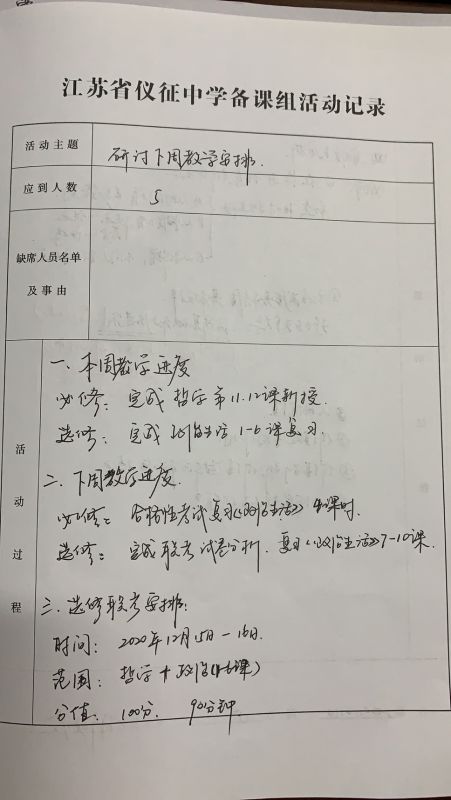 江苏省仪征中学备课组活动记录
活动主题
研讨下周教学安排.
应到人数
5
缺席人员名单
及事由
活动过程
一、本周教学进度
必修：完成哲学第11.12课新授.
选修：完成政治生活1-6课复习.
二、下周教学进度.
必修：合格性考试复习《政治生活》4课时.
选修：完成联考试卷分析.复习《政治生活》7-10课.
三、选修联考安排：
时间：2020年12月15日-16日.
范围：哲学+政治(1-6课)
分值：100分. 90分钟